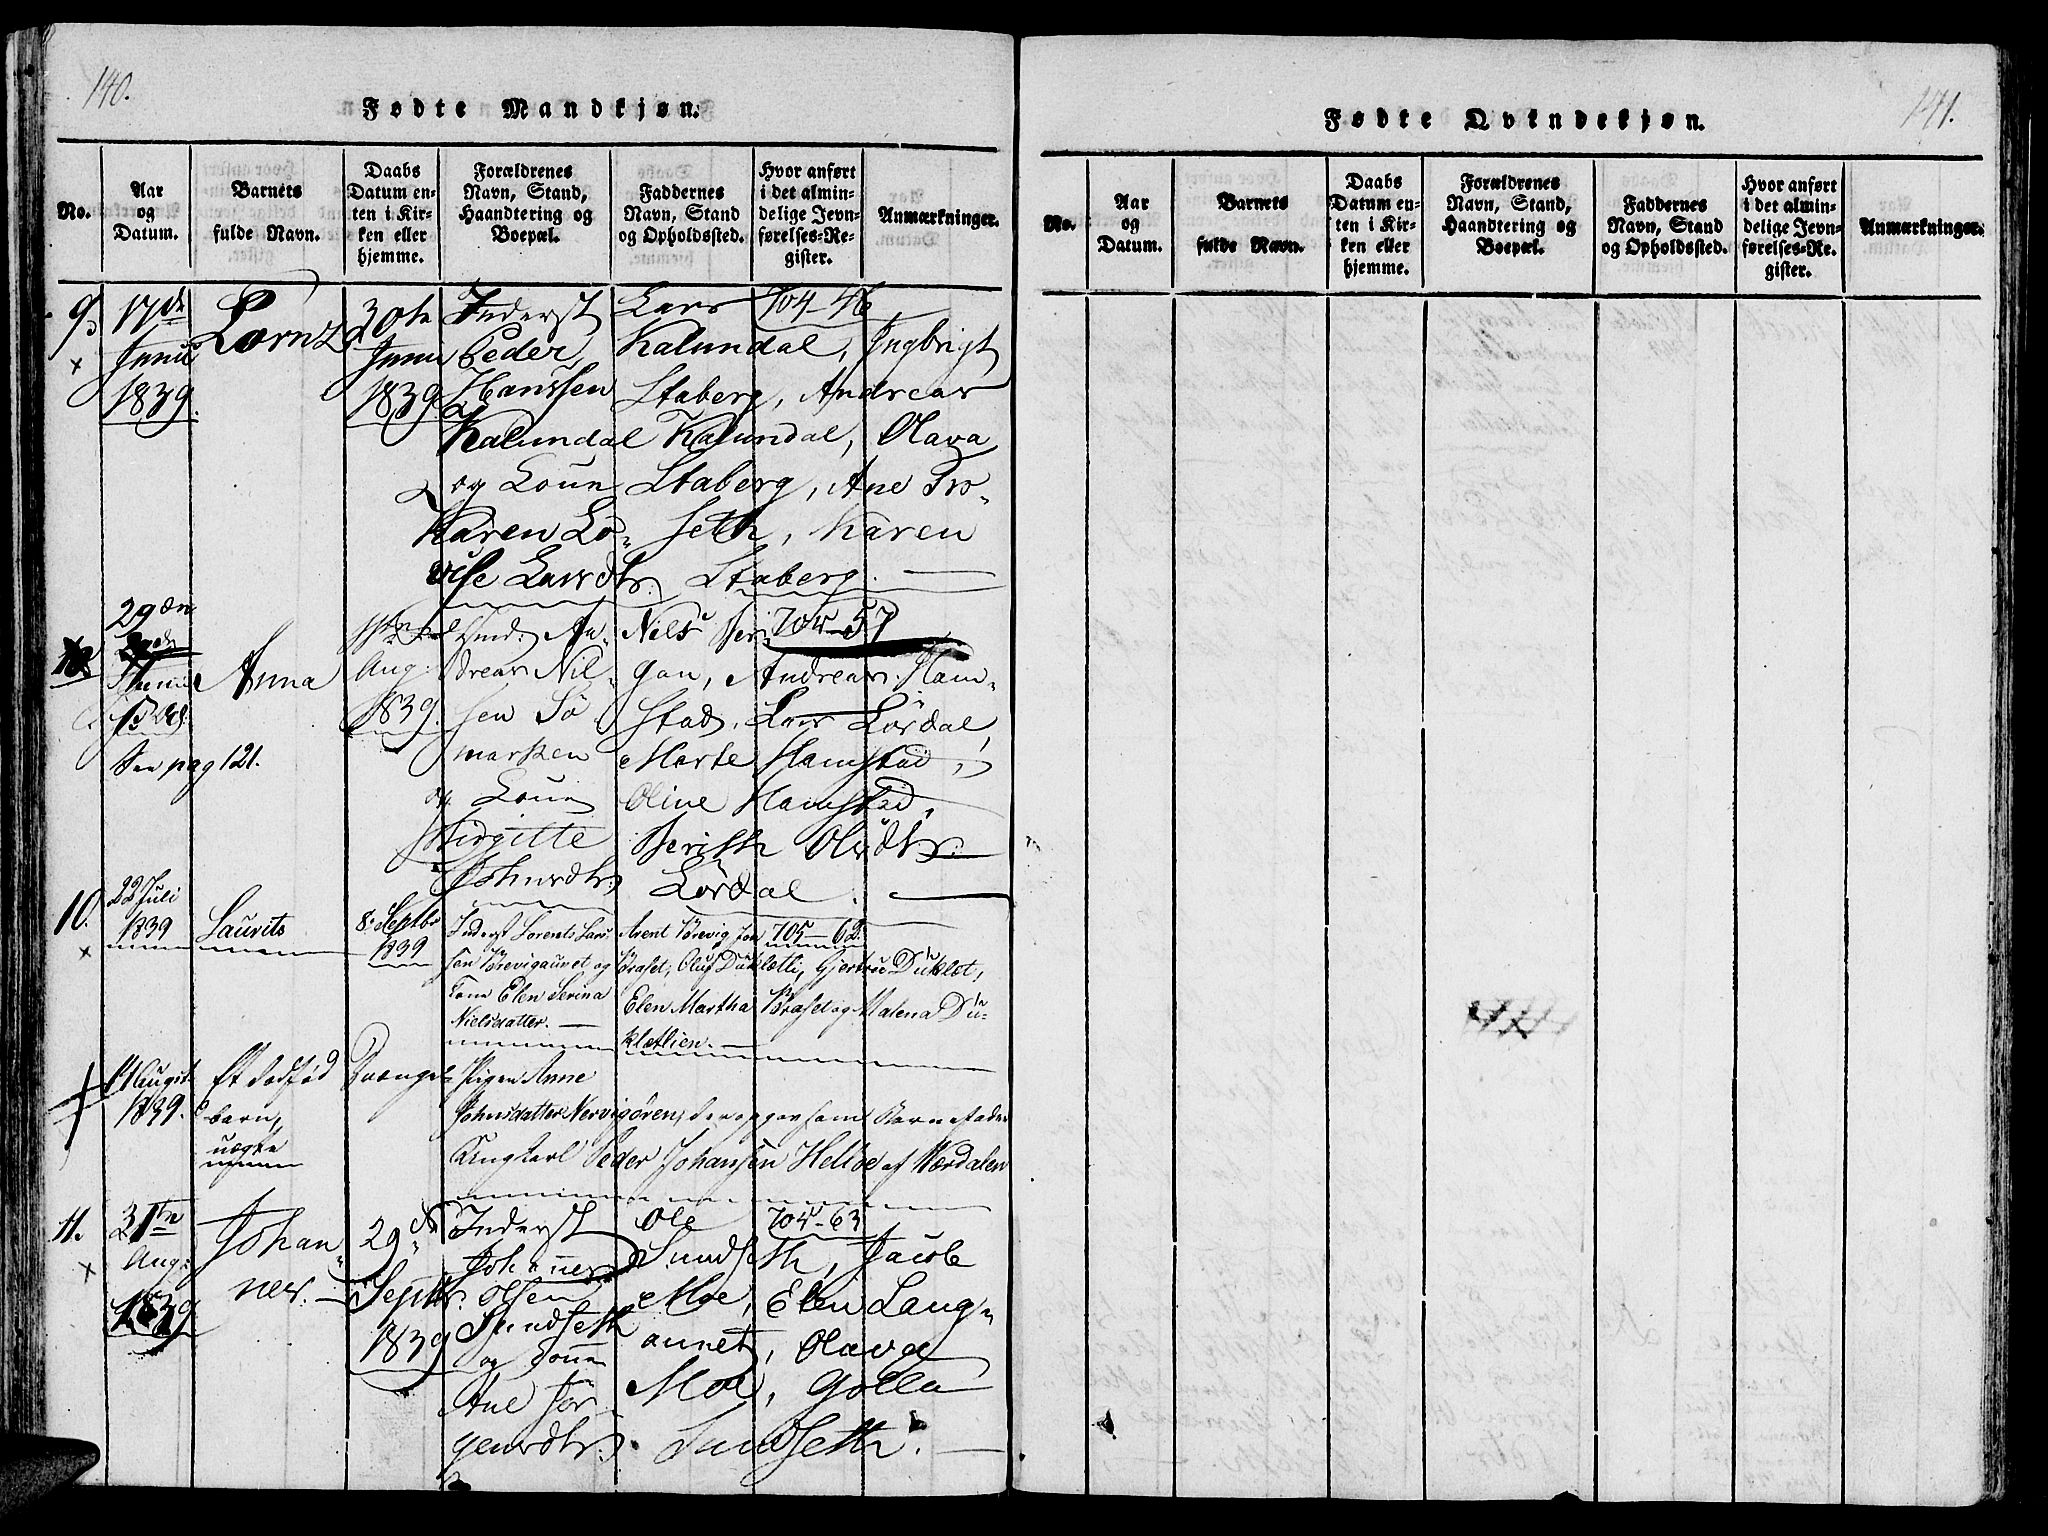 140.
Fødte Mandkjøn.
No.
Aar og Datum.
Barnets fulde Navn.
Daabs Datum enten i Kirken eller hjemme.
Forældrenes Navn, Stand, Haandtering og Boepæl.
Faddernes Navn, Stand og Opholdssted.
Hvor anført i det almindelige Jevnførelses-Register.
Anmærkninger.
9,
17de Junii 1839.
Lornz
30te Junii 1839
Inderst
Peder
Hanssen
Kalundal
og Kone
Karen Lo-
vise Larsdtr.
Lars
704-46
Kalundal, Ingbrigt
Staberg, Andreas
Kalundal, Olava
Staberg, Ane Tro-
seth, Karen
Staberg.
29de
Junii
See pag 121.
Anna
11te Aug: 1839.
Hmd: An-
dreas Nil-
sen Sö
marken
og Kone
Birgitte
Johnsdtr.
Nils Ber-
704-57
gan, Andreas Ham-
stad, Lars Lördal,
Marte Hamstad,
Oline Hamstad,
Berith Olsdtr.
Lördal.
10.
22 Juli
1839
Laurits
8. Septbr
1839
Inderst Lorents Lars-
sen Nørevigaunet og
Kone Elen Serina
Nielsdatter.
Arent Nørevig, Jon
705-62.
Braset, Oluf Düklætli, Gjertrue Düklæt,
Elen Martha Braset og Malena Dü-
klætlien.
11 August
1839.
Et dødfød
barn,
uægte
Tvangel-
Pigen Anne
Johnsdatter Nervigören, der opgav som Barnefader
Ungkarl Peder Johansen Helloe af Værdalen
11.
31te
Aug:
1839
Johan-
nes.
29de
Septbr.
1839
Inderst
Johannes
Olsen
Sundseth
og Kone
Ane Jör-
gensdtr.
Ole
704-63
Sundseth, Jacob
Moe, Elen Lang-
aunet, Olava
Moe, Golla
Sundseth.
141.
Fødte Qvindekjøn.
No.
Aar og Datum.
Barnets fulde Navn.
Daabs Datum enten i Kirken eller hjemme.
Forældrenes Navn, Stand, Haandtering og Boepæl.
Faddernes Navn, Stand og Opholdssted.
Hvor anført i det almindelige Jevnførelses-Register.
Anmærkninger.